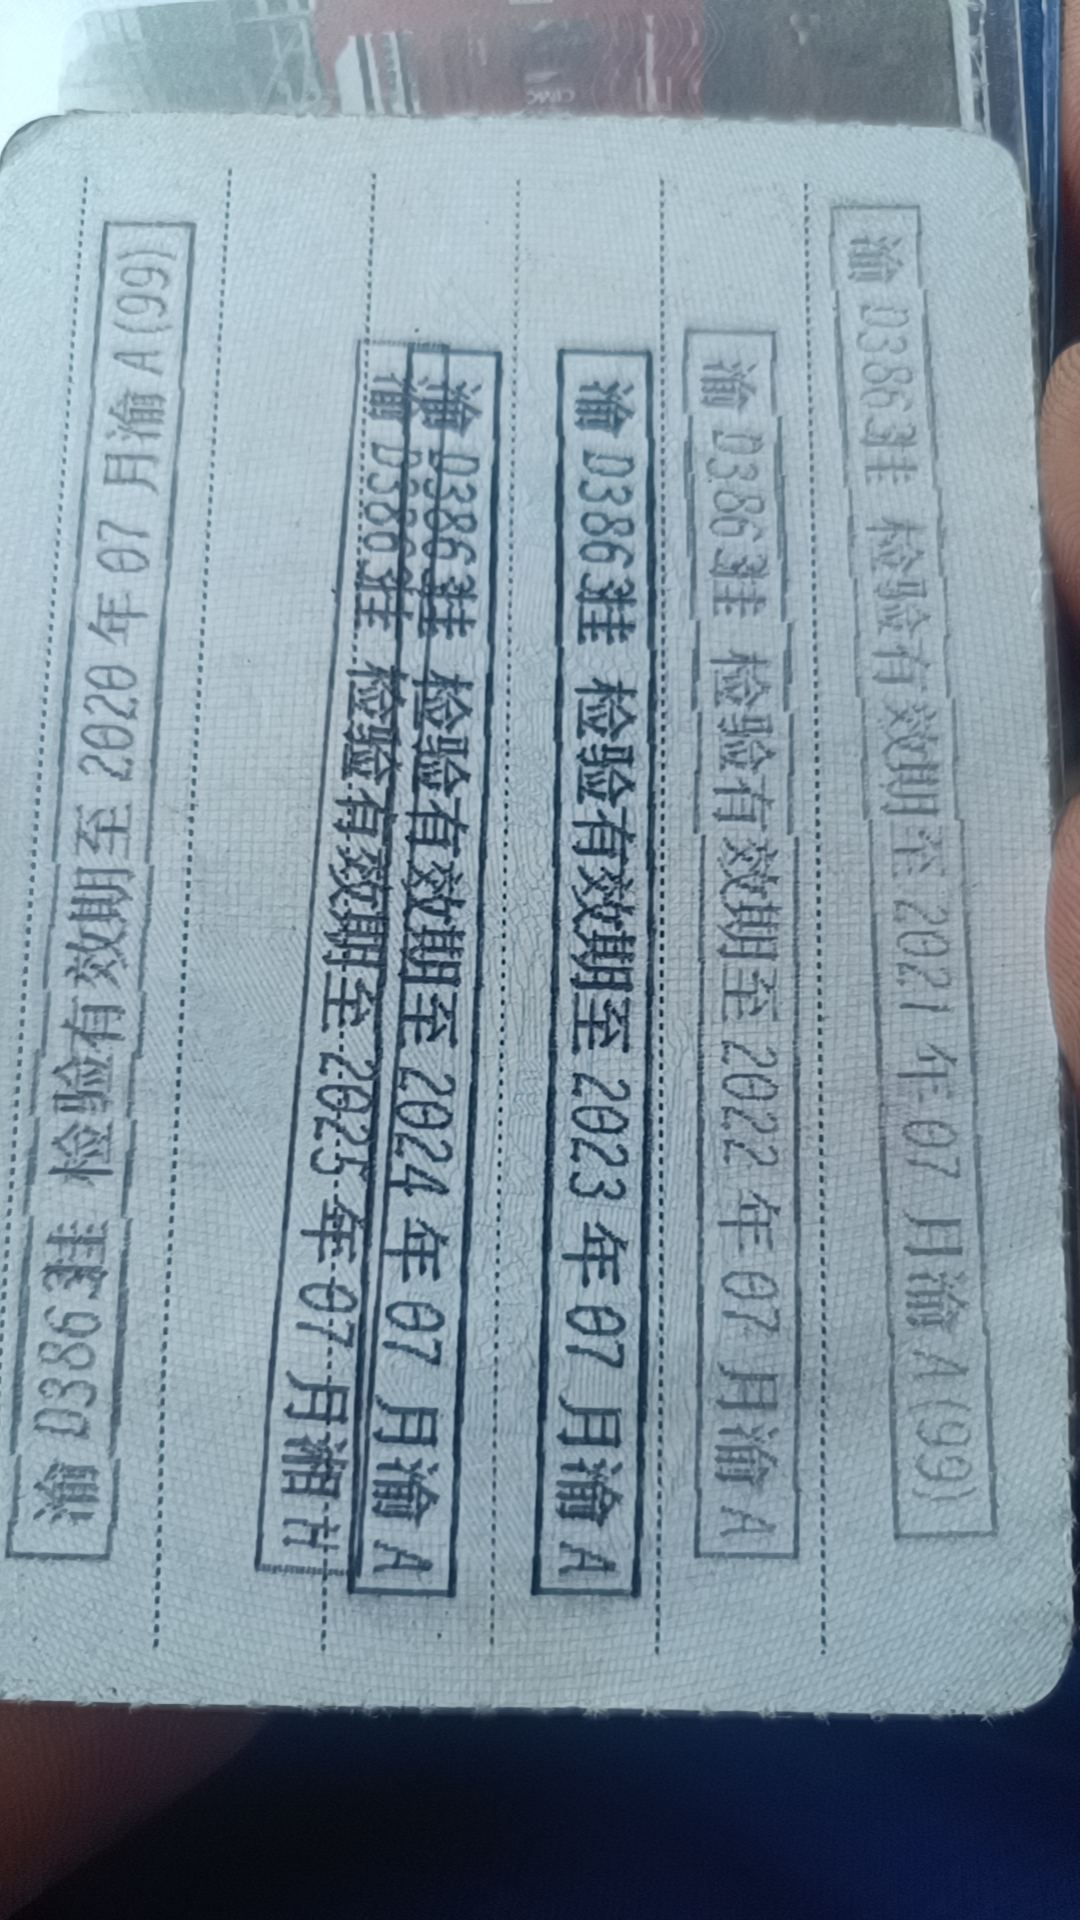 渝D3863挂 检验有效期至2021年07月渝A(99)
渝D3863挂 检验有效期至2022年07月渝A
渝D3863挂 检验有效期至2023年07月渝A
渝D3863挂 检验有效期至2024年07月渝A
渝D3863挂 检验有效期至2025年07月湘H
渝D3863挂 检验有效期至2020年07月渝A(99)